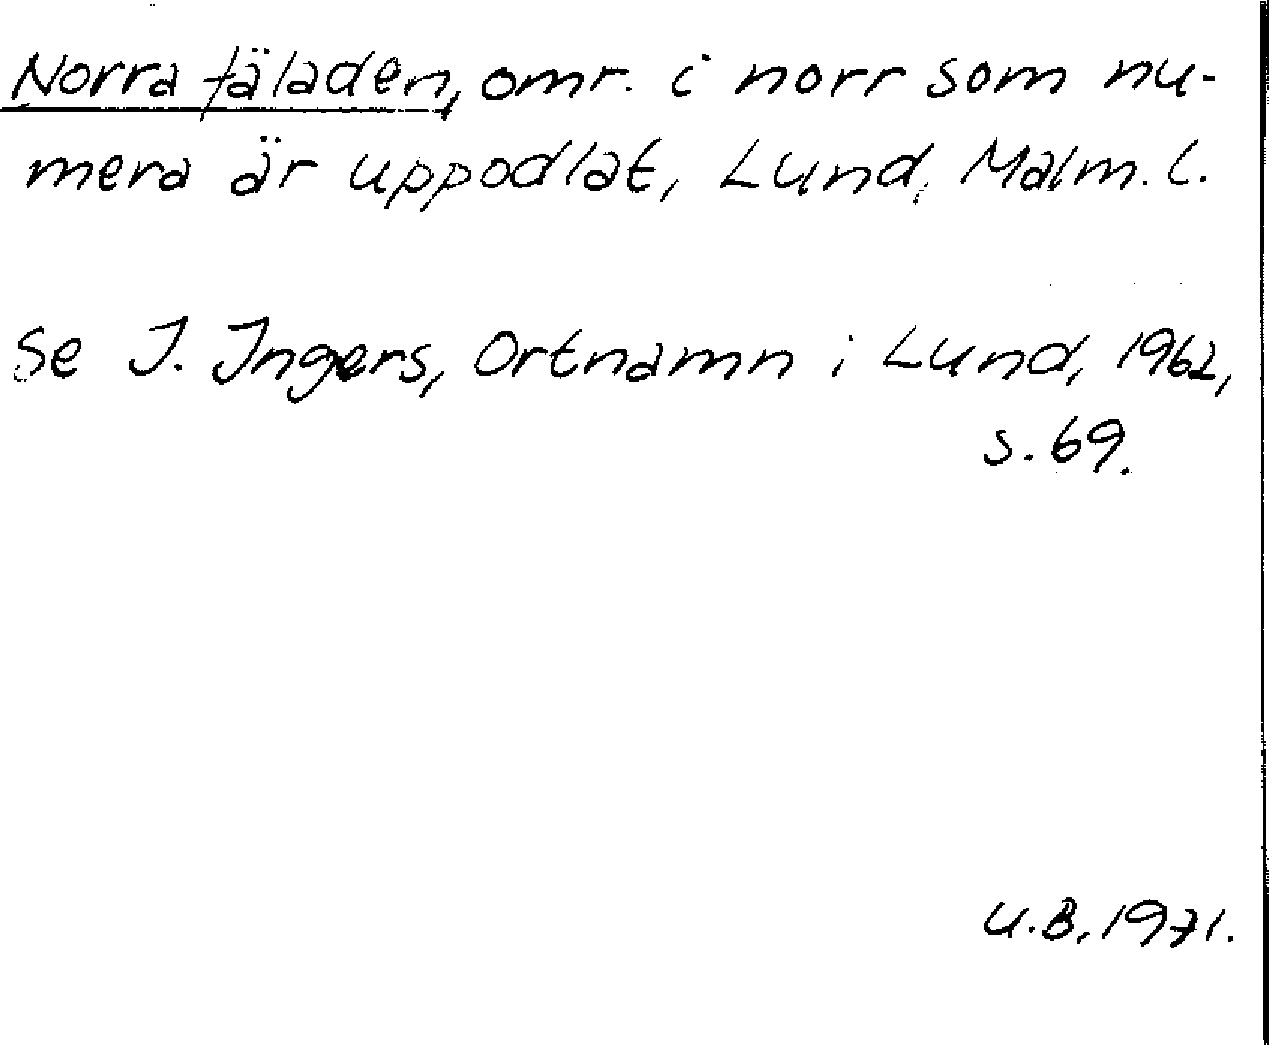 Norra fäladen, omr. i norr som nu-
mera är uppodlat, Lund, Malm. l.
Se I. Ingers, Ortnamn i Lund, 1962,
s. 69.
U.B. 1971.